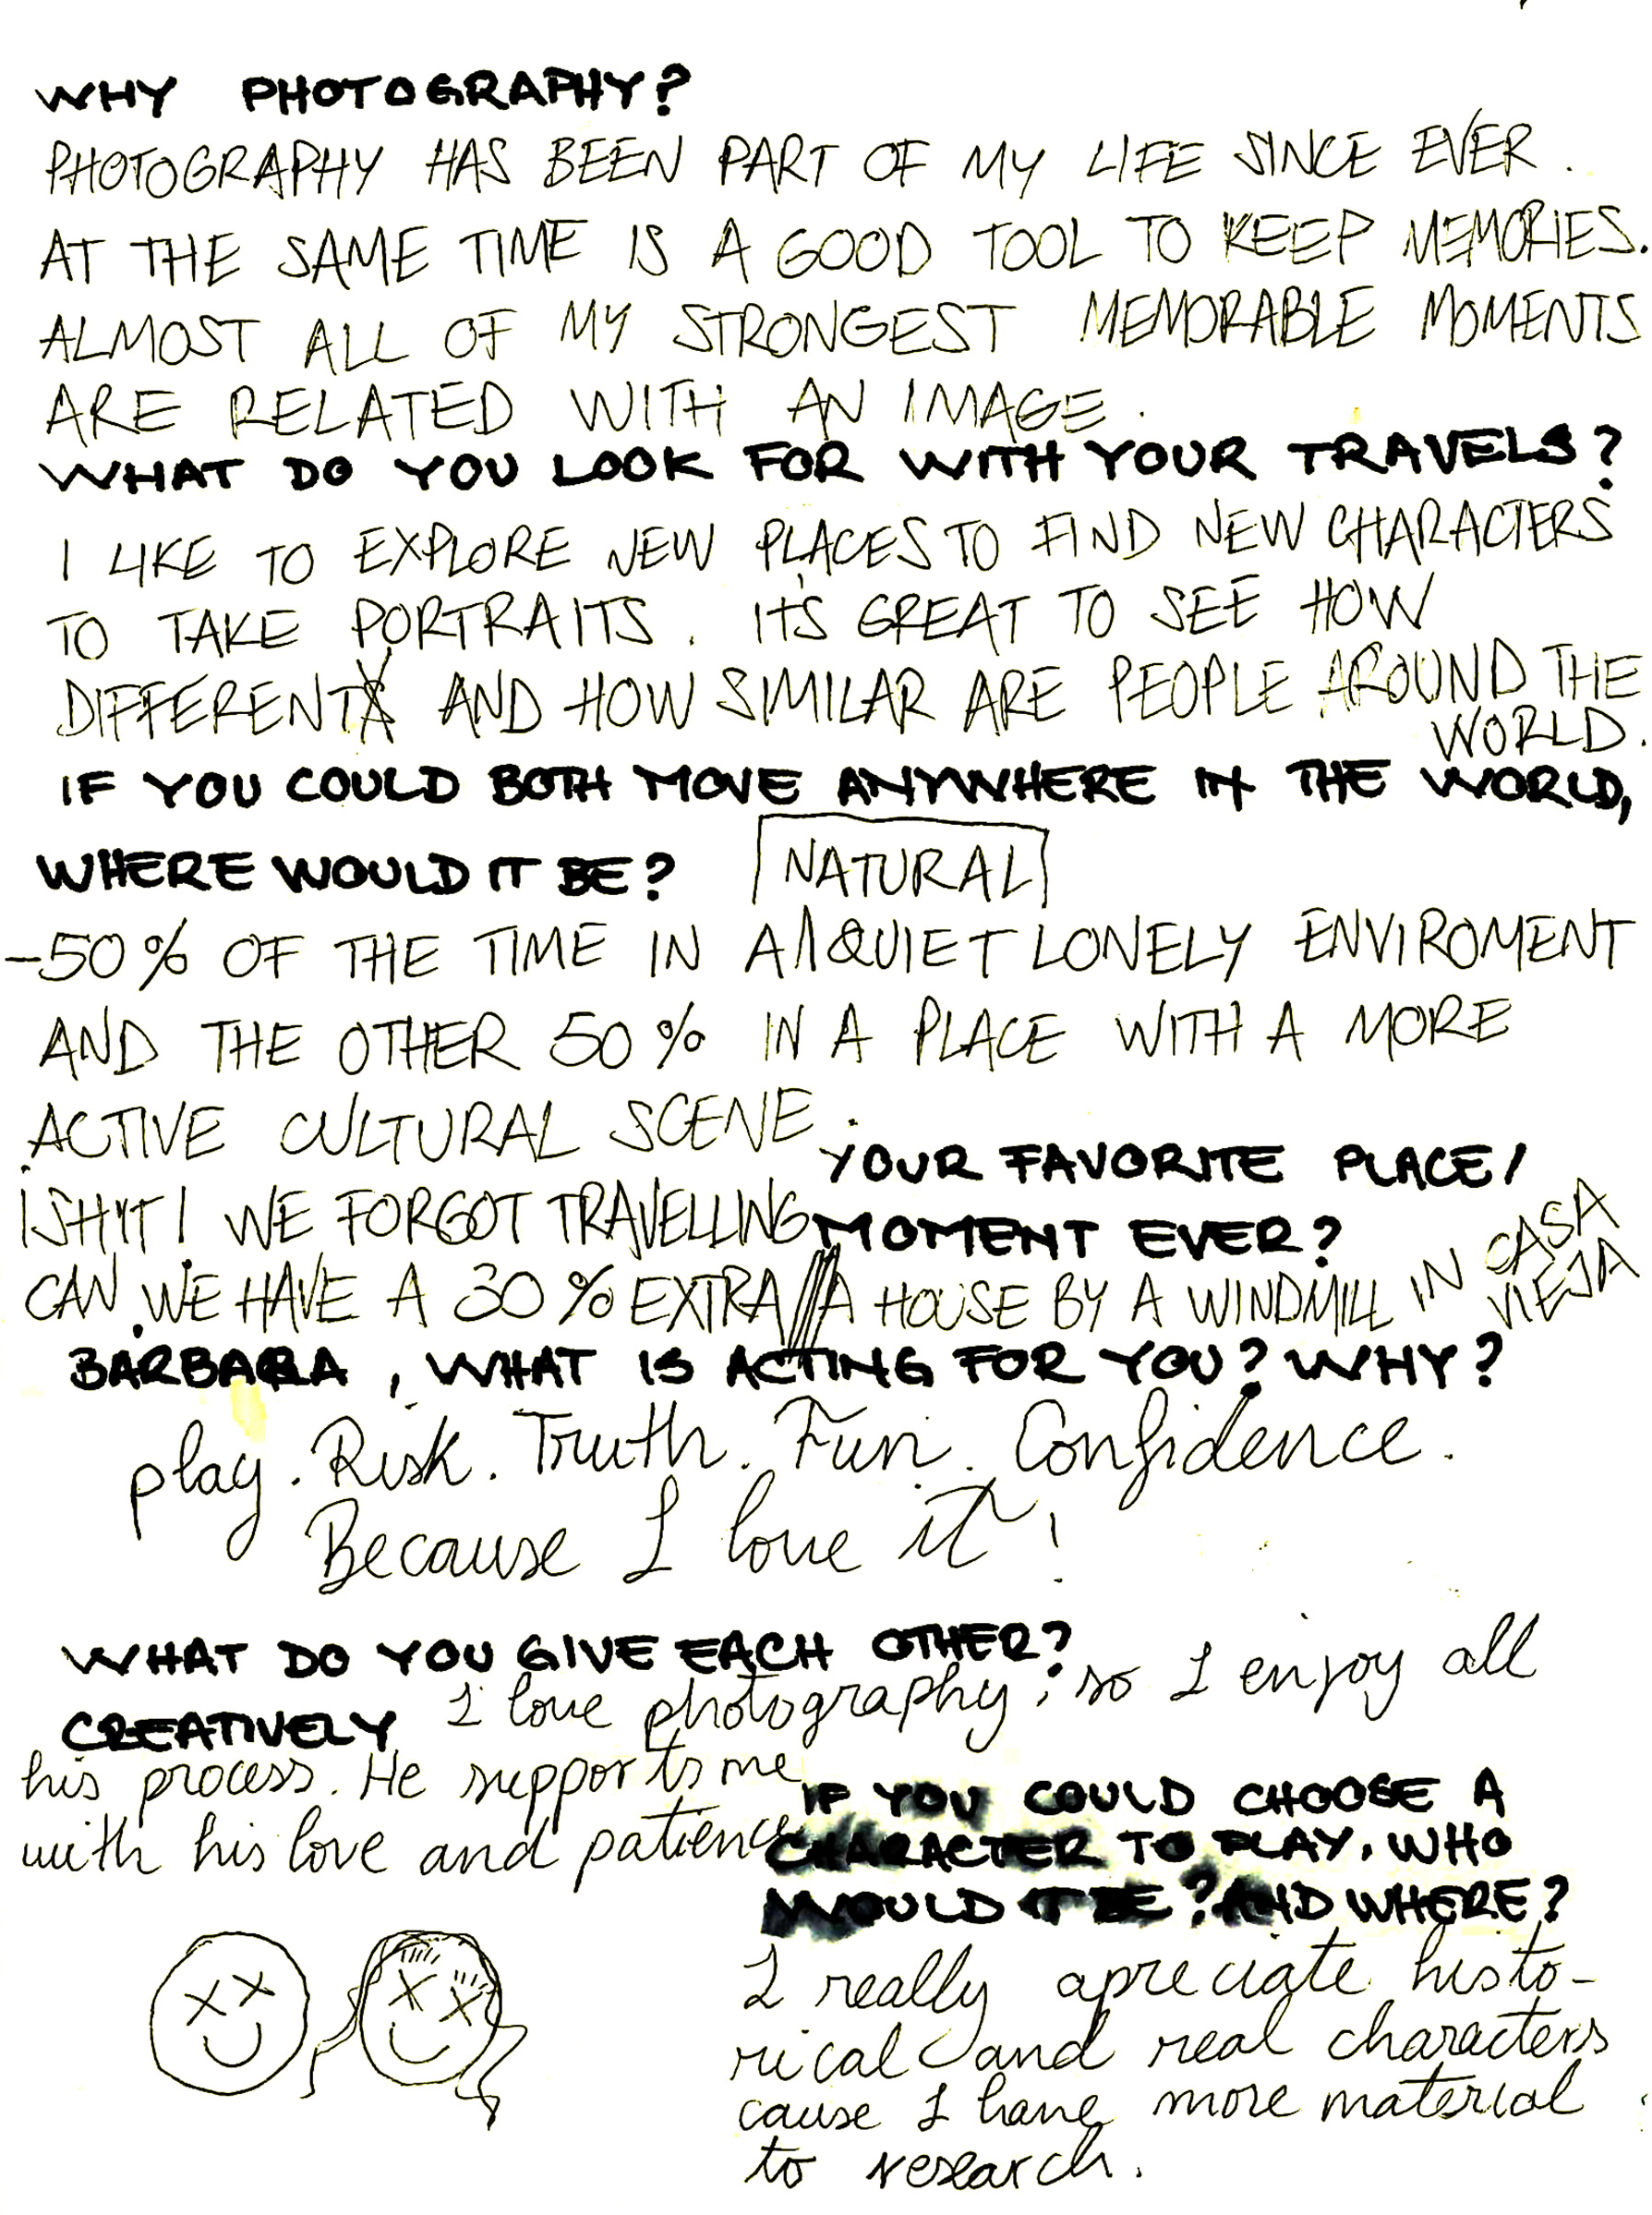 WHY PHOTOGRAPHY?
PHOTOGRAPHY HAS BEEN PART OF MY LIFE SINCE EVER.
AT THE SAME TIME IS A GOOD TOOL TO KEEP MEMORIES.
ALMOST ALL OF MY STRONGEST MEMORABLE MOMENTS
ARE RELATED WITH AN IMAGE.
WHAT DO YOU LOOK FOR WITH YOUR TRAVELS?
I LIKE TO EXPLORE NEW PLACES TO FIND NEW CHARACTERS
TO TAKE PORTRAITS. IT'S GREAT TO SEE HOW
DIFFERENT AND HOW SIMILAR ARE PEOPLE AROUND THE
WORLD.
IF YOU COULD BOTH MOVE ANYWHERE IN THE WORLD,
WHERE WOULD IT BE?
NATURAL
-50% OF THE TIME IN A QUIET LONELY ENVIROMENT
AND THE OTHER 50% IN A PLACE WITH A MORE
ACTIVE CULTURAL SCENE.
¡SHIT! WE FORGOT TRAVELLING
CAN WE HAVE A 30% EXTRA
YOUR FAVORITE PLACE/
MOMENT EVER?
A HOUSE BY A WINDMILL IN CASA
VIEJA
BARBARA, WHAT IS ACTING FOR YOU? WHY?
play. Risk. Truth. Fun. Confidence.
Because I love it!
WHAT DO YOU GIVE EACH OTHER?
CREATIVELY
I love photography, so I enjoy all
his process. He supports me
with his love and patience
IF YOU COULD CHOOSE A
CHARACTER TO PLAY, WHO
WOULD IT BE? AND WHERE?
I really apreciate histo-
rical and real characters
cause I have more material
to research.